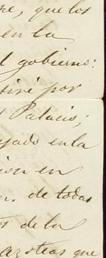 re, que los
en la
l gobierno:
tiré por
Palacio;
ejado en la
en
de todas
de la
azoteas que